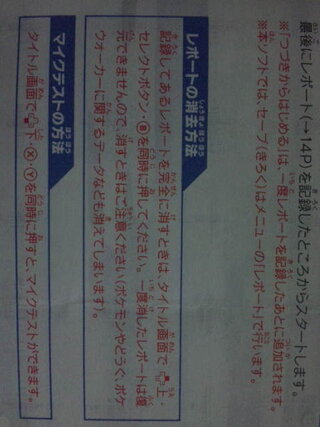 最後にレポート(→14P)を記録したところからスタートします。
※「つづきからはじめる」は、一度レポートを記録したあとに追加されます。
※本ソフトでは、セーブ(きろく)はメニューの「レポート」で行います。
レポートの消去方法
記録してあるレポートを完全に消すときは、タイトル画面で上・
セレクトボタン・Ⓑを同時に押してください。一度消したレポートは復
元できませんので、消すときはご注意ください(ポケモンやどうぐ、ポケ
ウォーカーに関するデータなども消えてしまいます)。
マイクテストの方法
タイトル画面で下・Ⓧ・Ⓨを同時に押すと、マイクテストができます。